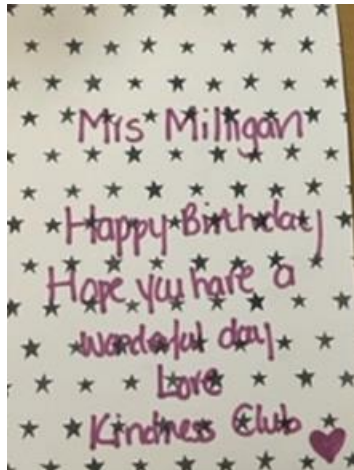 Mrs Milligan
Happy Birthday
Hope you have a
wonderful day
Love
Kindness Club